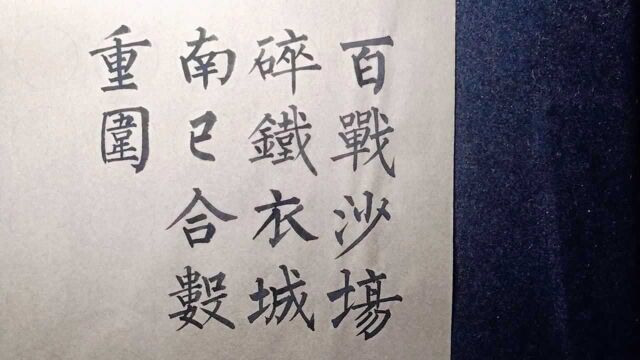 百戰沙場
碎鐵衣城
南已合數
重圍